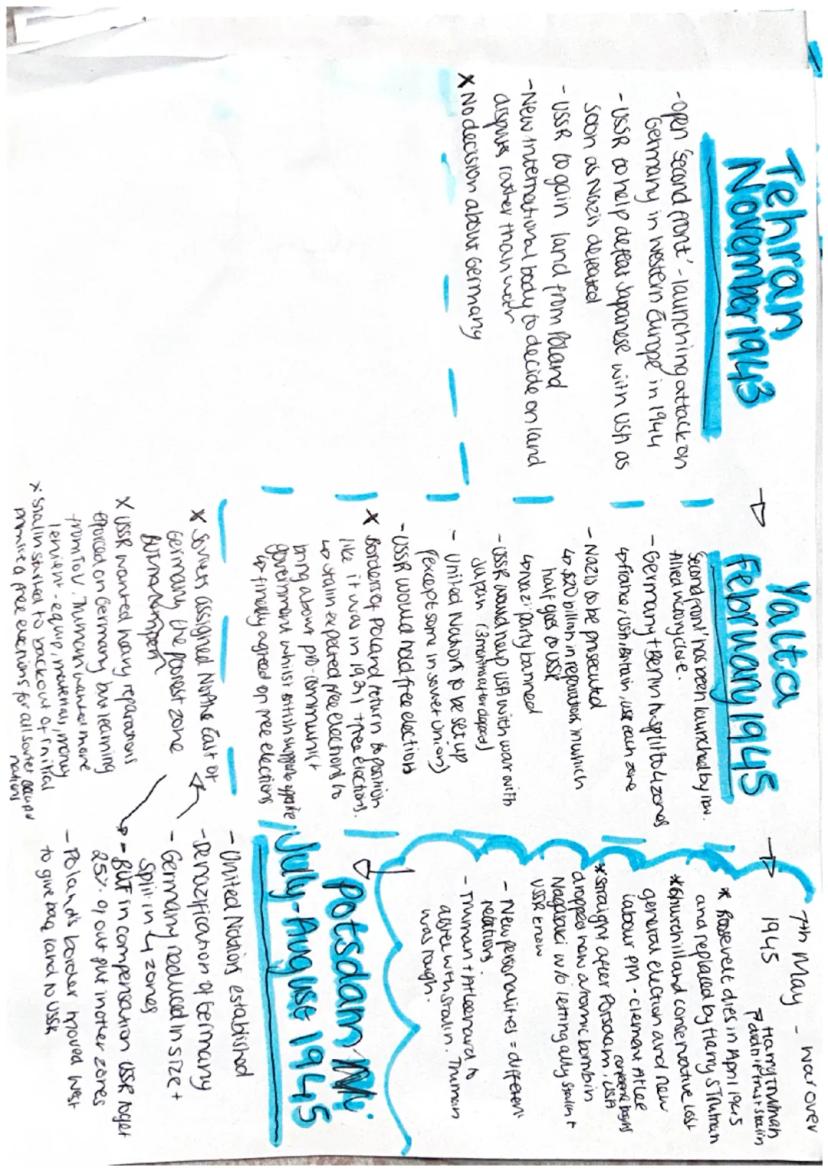 Tehran
November 1943
- Open 'second front' - launching attack on
Germany in western Europe in 1944
- USSR to help defeat Japanese with USA as
soon as Nazis defeated
- USSR to gain land from Poland
- New international body to decide on land
disputes rather than war
X No decision about Germany
Yalta
February 1945
Second front' has been launched by now.
Allied victory close.
- Germany + Berlin to split to 4 zones
↳ France, USA, Britain, USSR each zone
- Nazis to be prosecuted
↳ $20 billion in reparations in which
half goes to USSR
↳ nazi party banned
- USSR would help USA with war with
Japan (3 months after defeat)
- United Nations to be set up
(except some in Soviet Union)
- USSR would hold free elections
X Borders of Poland return to position
like it was in 1921 + free elections.
↳ Stalin expected free elections to
bring about pro-communist
government whilst British support opposite
↳ finally agreed on free elections
7th May - war over
1945
Harry Truman
didn't trust Stalin
* Roosevelt dies in April 1945
and replaced by Harry S Truman
* Churchill and conservative lost
general election and new
labour PM - Clement Atlee
* Straight after Potsdam, USA
conference begins
dropped new atomic bomb in
Nagasaki w/o letting ally Stalin +
USSR know
- New personalities = different
relations.
- Truman + Atlee hard to
agree with Stalin. Truman
was tough.
Potsdam
July - August 1945
- United Nations established
- Denazification of Germany
- Germany reduced in size +
split in 4 zones
- BUT in compensation USSR to get
25% of output in other zones
- Poland's border moved west
to give back land to USSR
X Soviets assigned North East of
Germany, the poorest zone
X USSR wanted heavy reparations
enforced on Germany but learning
from ToV. Truman wanted more
lenient - equip, materials, money
X Stalin started to back out of initial
promise of free elections for all soviet occupied
nations